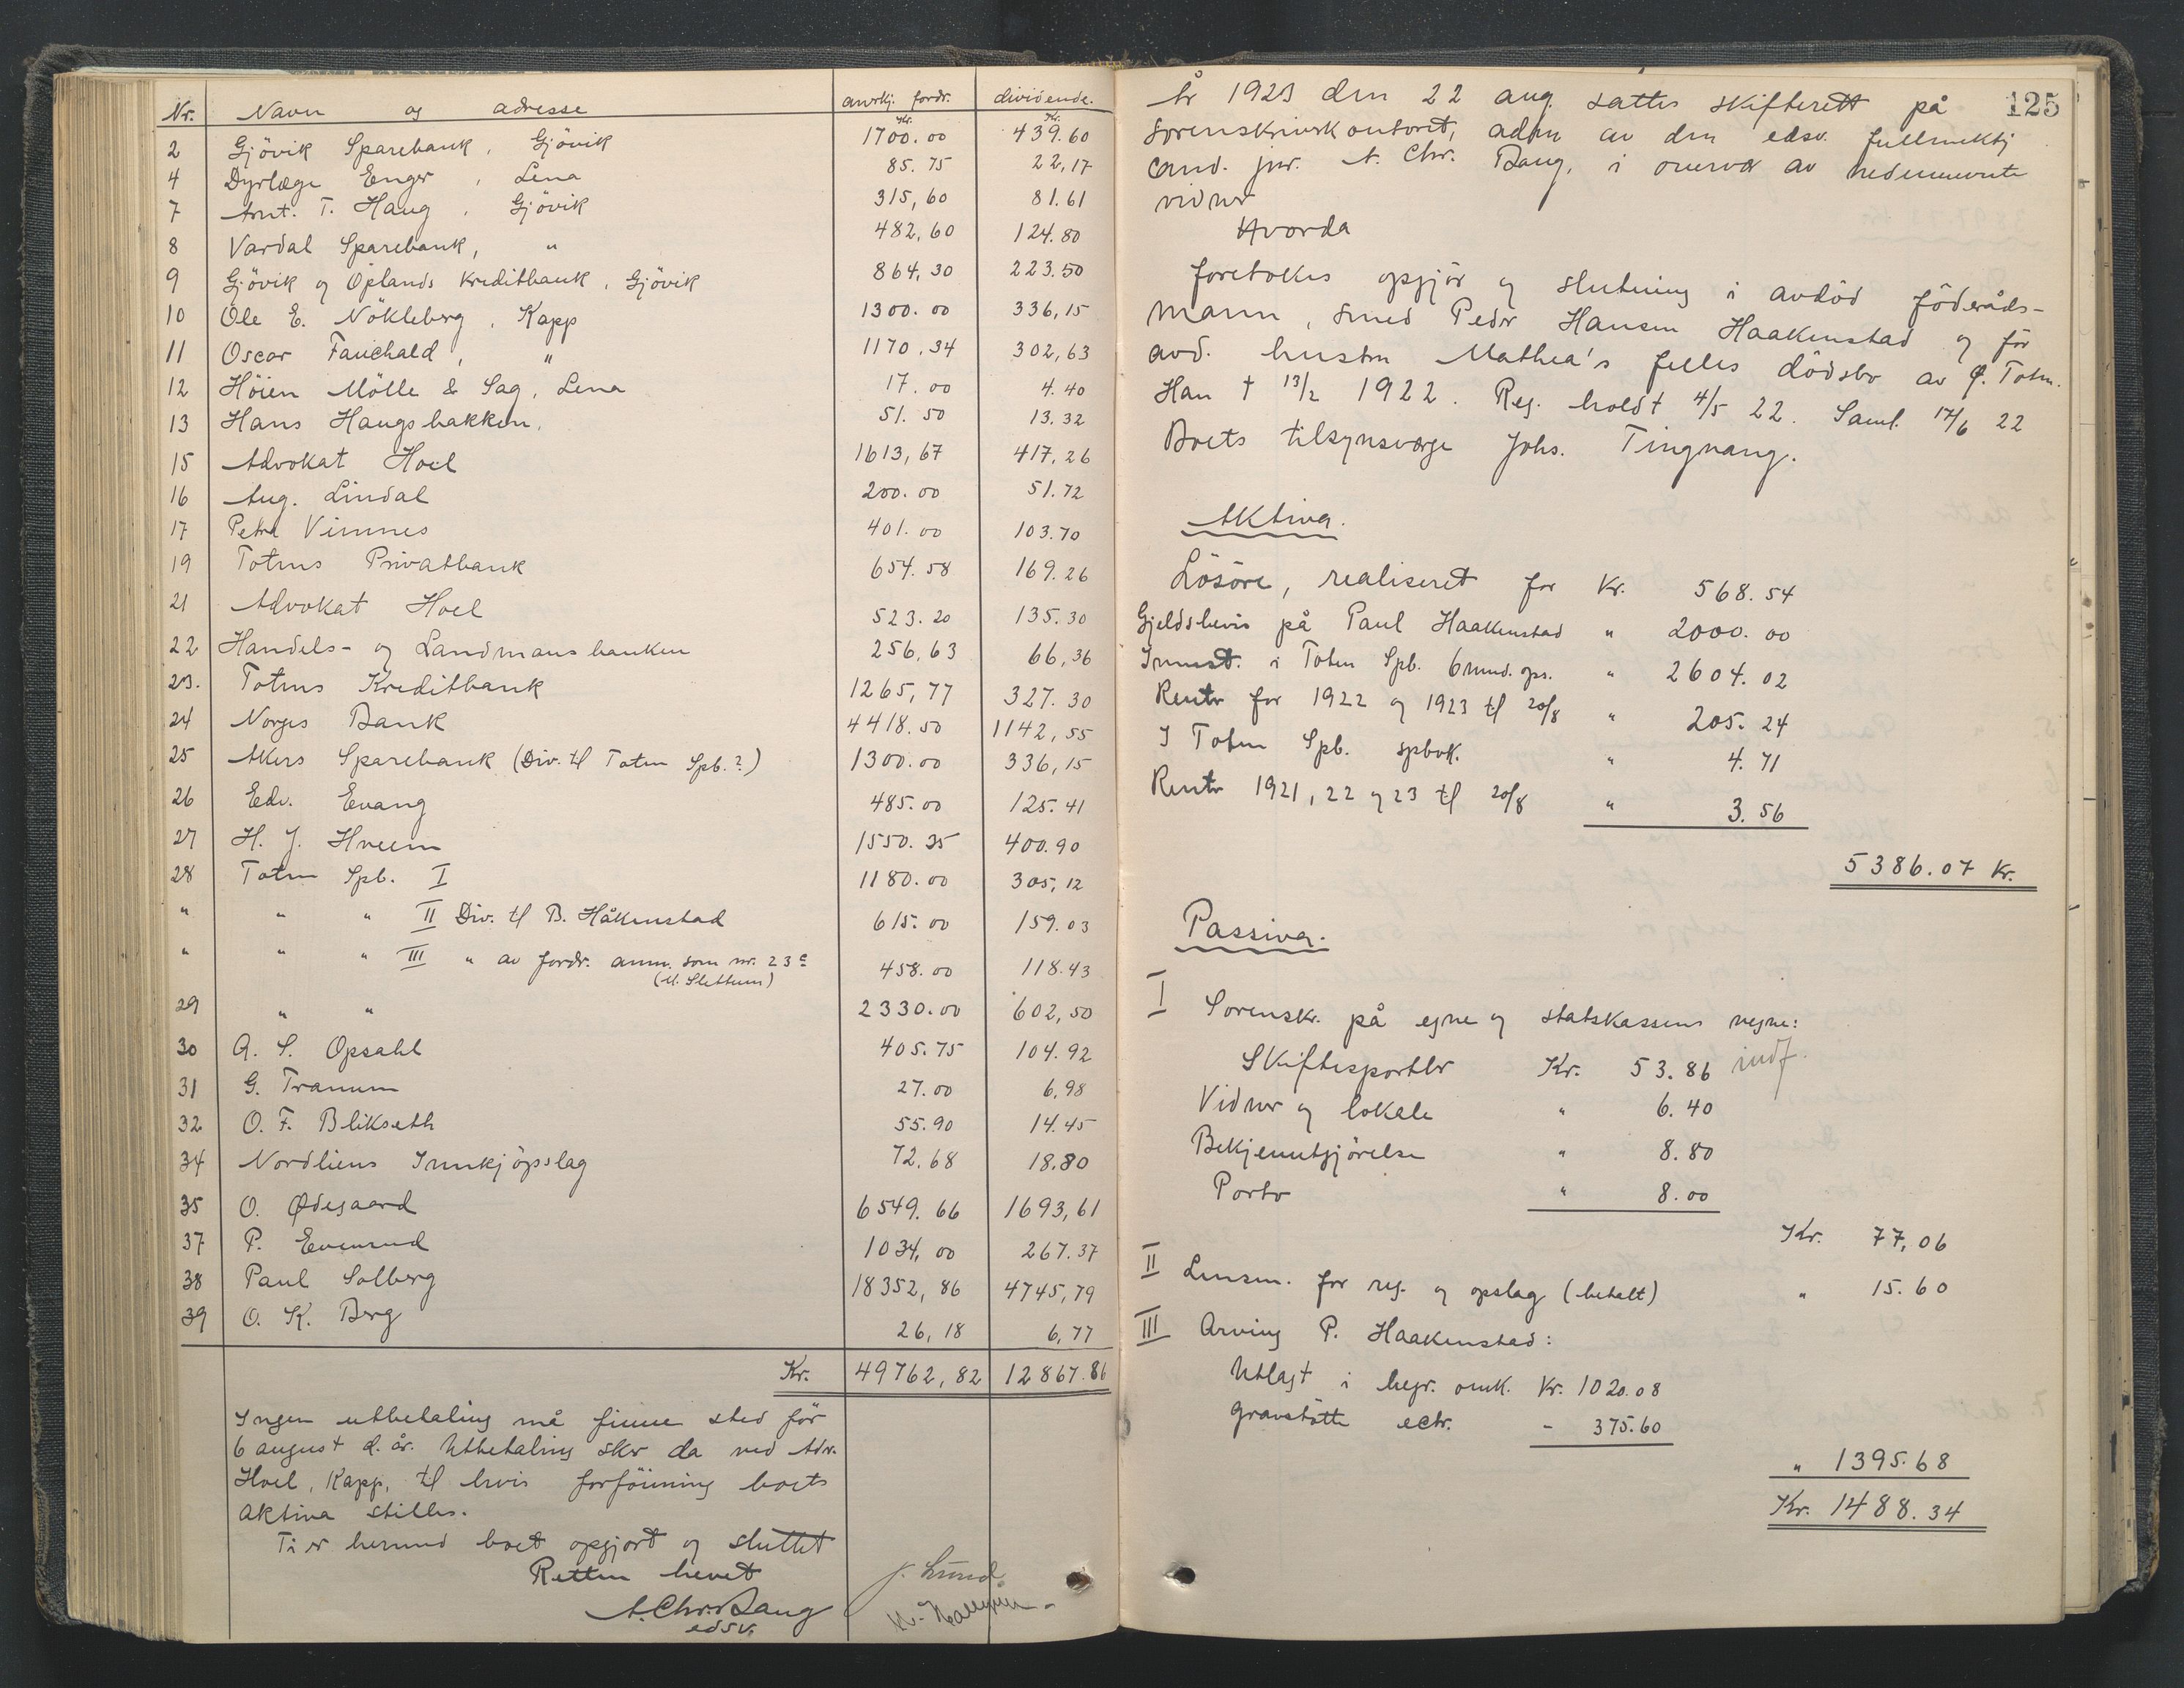 Nr. Navn og adresse anerkj. fordr. dividende.
Kr. Kr.
2 Gjövik Sparebank, Gjövik 1700.00 439.60
4 Dyrlæge Enger, Lena 85.75 22,17
7 Arnt. T. Haug, Gjövik 315,60 81.61
8 Vardal Sparebank, " 482,60 124.80
9 Gjövik og Oplands Kreditbank, Gjövik 864,30 223.50
10 Ole E. Nökleberg, Kapp 1300.00 336,15
11 Oscar Fauchald, " 1170,34 302,63
12 Höien Mölle & Sag, Lena 17.00 4.40
13 Hans Haugsbakken, 51.50 13.32
15 Advokat Hoel 1613,67 417,26
16 Aug. Lindal 200.00 51.72
17 Petra Vimnes 401.00 103.70
19 Totens Privatbank 654.58 169.26
21 Advokat Hoel 523.20 135.30
22 Handels- og Landmansbanken 256,63 66,36
23. Totens Kreditbank 1265,77 327.30
24 Norges Bank 4418.50 1142,55
25 Akers Sparebank (Div. til Toten Spb.?) 1300.00 336,15
26 Edv. Evang 485.00 125.41
27 H. J. Hveem 1550.35 400.90
28 Toten Spb. I 1180.00 305,12
" " " II Div. til B. Håkenstad 615.00 159.03
" " " III " av fordr. anm. som nr. 23c 458.00 118.43
(M. Slettum)
29 " " 2330.00 602,50
30 A. S. Opsahl 405.75 104.92
31 G. Tranum 27.00 6,98
32 O. F. Blikseth 55.90 14.45
34 Nordliens Innkjöpslag 72.68 18.80
35 O. Ødegaard 6549.66 1693,61
37 P. Evenrud 1034,00 267.37
38 Paul Solberg 18352,86 4745,79
39 O. K. Berg 26,18 6,77
Kr. 49762,82 12867.86
Ingen utbetaling må finne sted för
6 august d. år. Utbetaling sker da ved Adv.
Hoel, Kapp, til hvis forföining boets
aktiva stilles.
Ti er hermed boet opgjort og sluttet
Retten hevet
A. Chr. Bang J. Lund
edsv.
125
År 1923 den 22 aug. sattes skifterett på
sorenskriverkontoret, adm av den edsv. fullmektig
cand. jur. A. Chr. Bang, i overvær av nedennevnte
vidner
Hvorda
foretokes opgjör og slutning i avdöd föderåds-
mann, smed Peder Hansen Haakenstad og för
avd. hustru Mathea's felles dödsbo av Ø. Toten.
Han † 13/2 1922. Reg. holdt 4/5 22. Saml. 17/6 22
Boets tilsynsverge Johs. Tingvang.
Aktiva.
Lösöre, realiseret for Kr. 568.54
Gjeldsbevis på Paul Haakenstad " 2000.00
Innest. i Toten Spb. 6 mnd. ops. " 2604.02
Renter for 1922 og 1923 til 20/8 " 205.24
I Toten Spb. spbok. " 4.71
Renter 1921, 22 og 23 til 20/8 " 3.56
5386.07 Kr.
Passiva.
I Sorenskr. på egne og statskassens vegne:
Skiftesportler Kr. 53.86 indf.
Vidner og lokale " 6.40
Bekjenntgjörelse " 8.80
Porto " 8.00
Kr. 77,06
II Lensm. for reg. og opslag (betalt) " 15.60
III Arving P. Haakenstad:
Utlagt i begr. omk. Kr. 1020.08
gravstötte ectr. - 375.60
" 1395.68
Kr. 1488.34